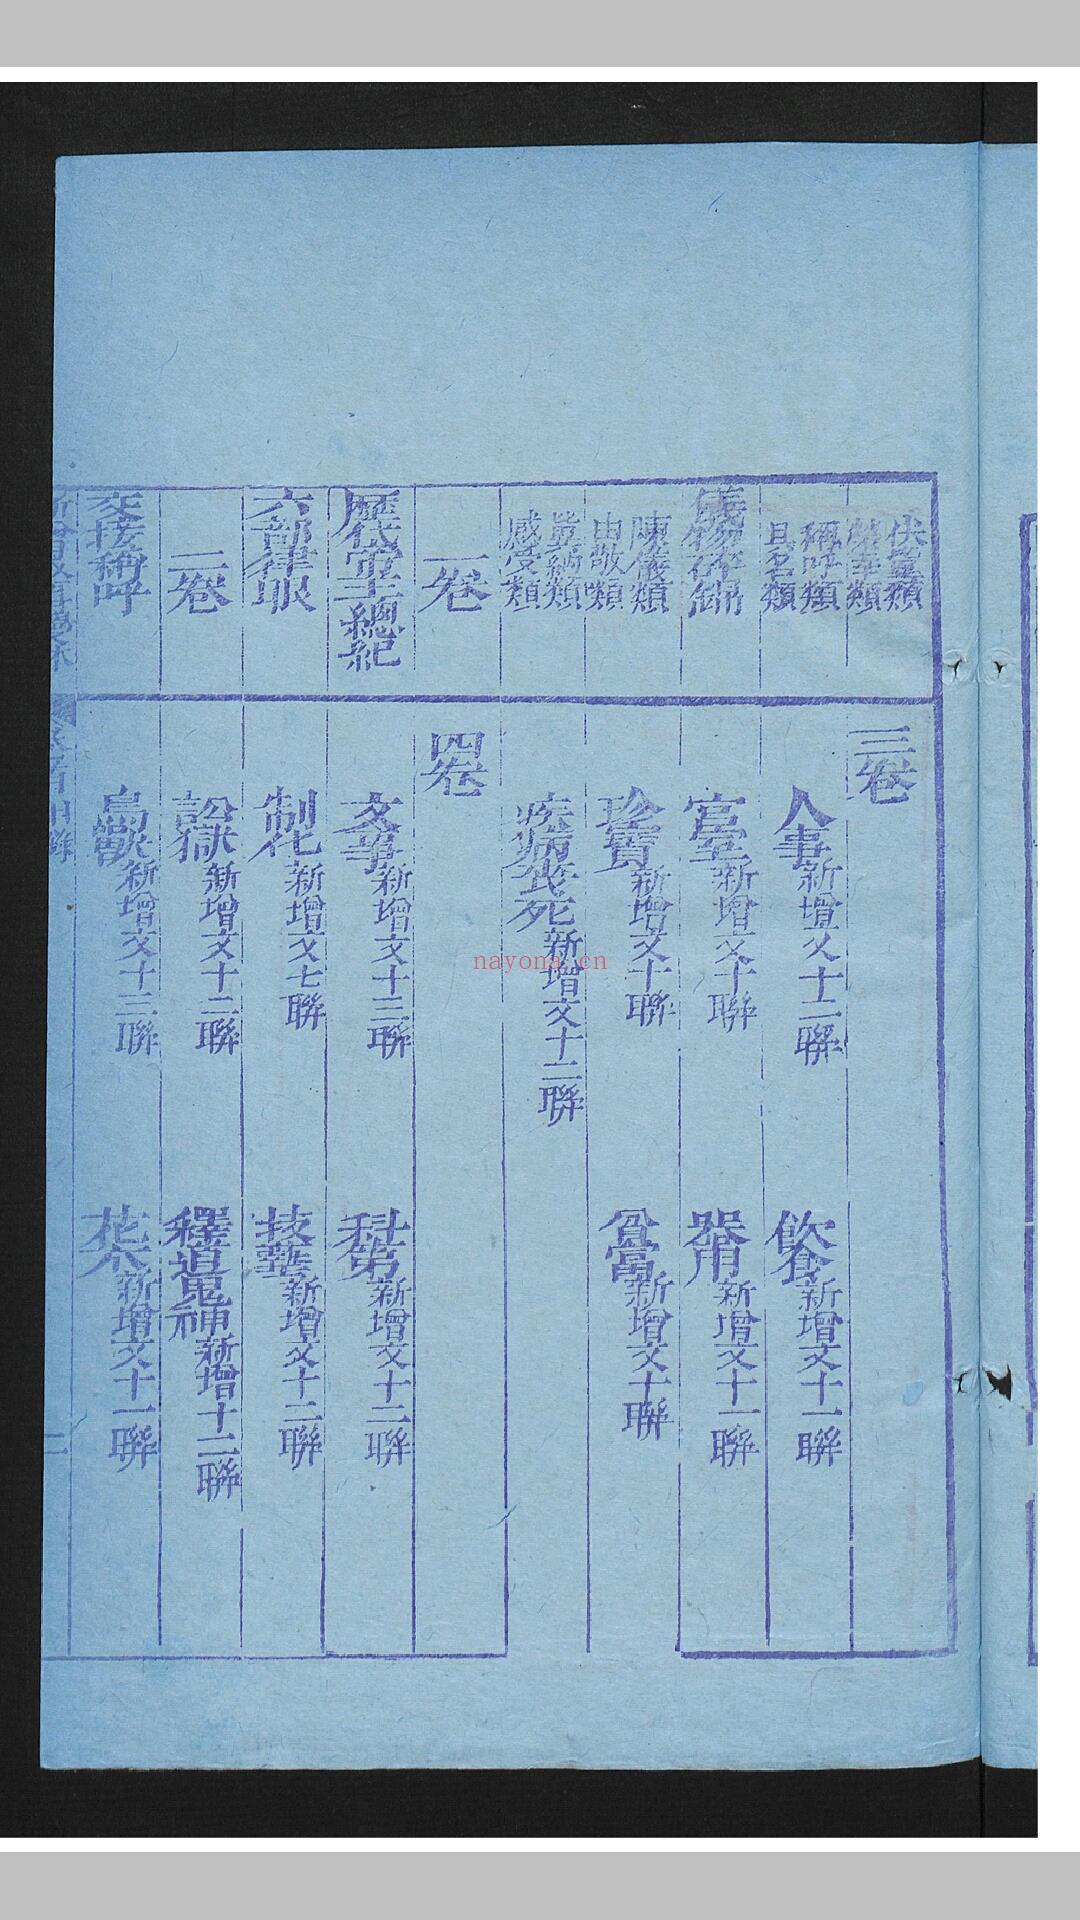 類
稱呼類
具名類
儀物碎錦
陳儀類
申敬類
感受類
一卷
歷代帝王總紀
六部律眼
二卷
交接稱呼
三卷
人事新增文十二聯
飲食新增文十一聯
宮室新增文十聯
器用新增文十一聯
珍寶新增文十聯
貧富新增文十聯
疾病喪死新增文十二聯
四卷
文事新增文十三聯
科第新增文十二聯
制作新增文七聯
技藝新增文十二聯
訟獄新增文十二聯
釋道鬼神新增十二聯
鳥獸新增文十三聯
花木新增文十一聯
二
nayona.cn